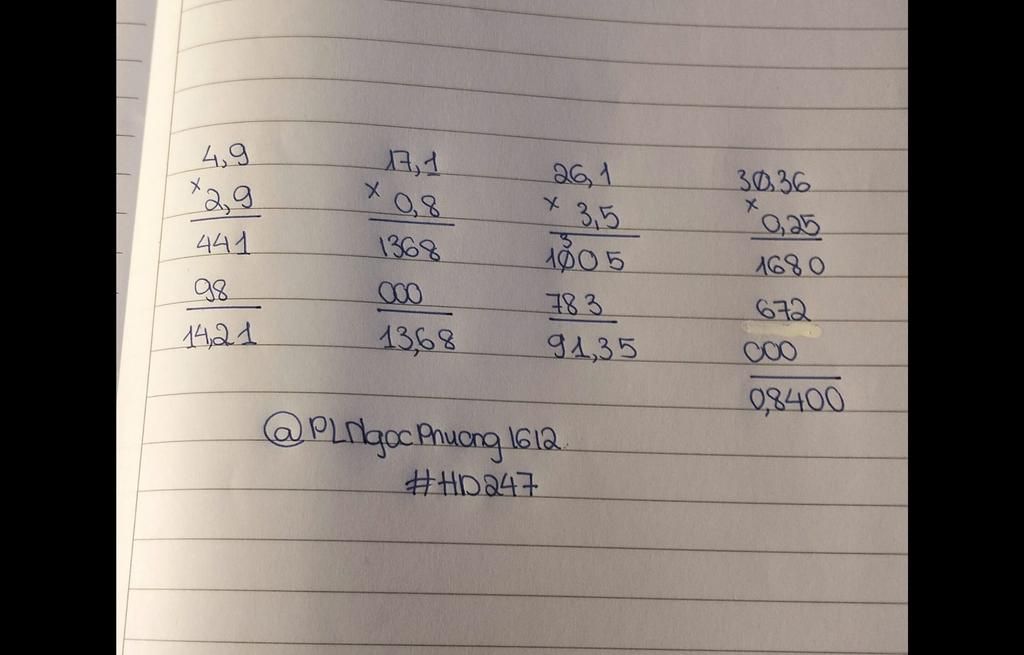 4,9
× 2,9
441
98
14,21
17,1
× 0,8
1368
000
13,68
26,1
× 3,5
1305
783
91,35
3,36
× 0,25
1680
672
000
0,8400
@PLNgocPhuong1612
#HD247